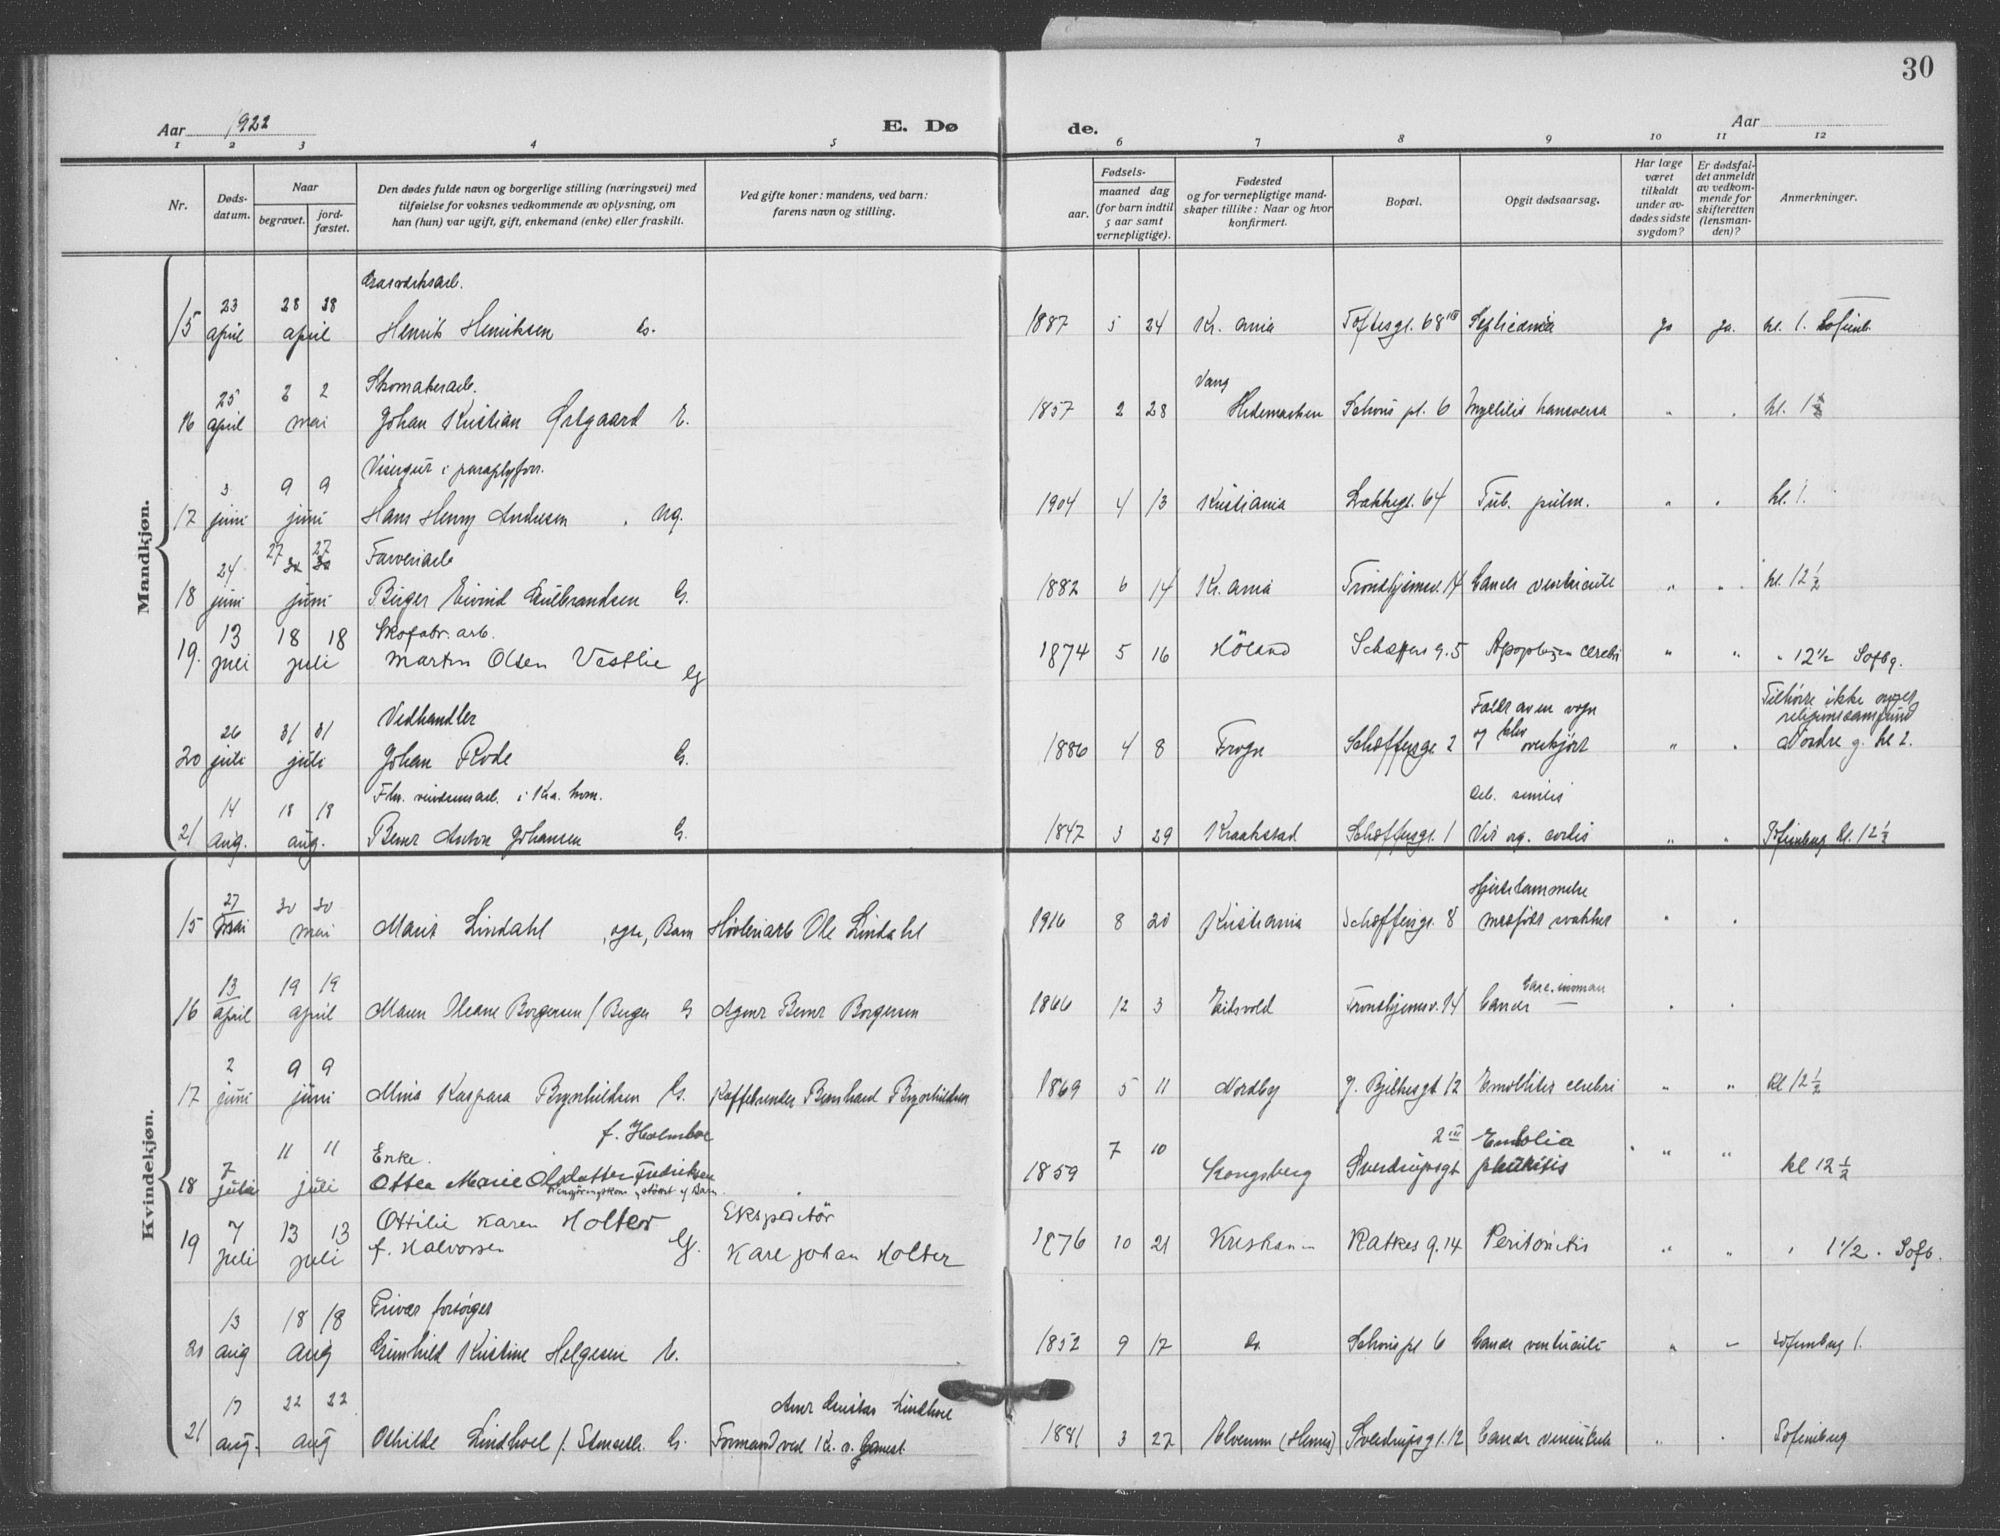 30
Aar 1922 E. Døde. Aar
1 2 3 4 5 6 7 8 9 10 11 12
Nr.
Døds-
datum.
Naar
begravet.
jord-
fæstet.
Den dødes fulde navn og borgerlige stilling (næringsvei) med
tilføielse for voksnes vedkommende av oplysning, om
han (hun) var ugift, gift, enkemand (enke) eller fraskilt.
Ved gifte koner: mandens, ved barn:
farens navn og stilling.
Fødsels-
aar.
maaned dag
(for barn indtil
5 aar samt
vernepligtige).
Fødested
og for vernepligtige mand-
skaper tillike: Naar og hvor
konfirmert.
Bopæl.
Opgit dødsaarsag.
Har læge
været
tilkaldt
under av-
dødes sidste
sygdom?
Er dødsfal-
det anmeldt
av vedkom-
mende for
skifteretten
(lensman-
den)?
Anmerkninger.
Mandkjøn.
15 23 april 28 28 april Henrik Henriksen 1887 5 24 Kr.ania Toftesgt. 68 ja ja. kl. 1. Sofienb.
Skomakerarb.
16 25 april 2 2 mai Johan Kristian Østgaard E. 1857 2 28 Vang Hedemarken Schous pl. 6 " " kl. 1½
Visergut i paraplyforr.
17 3 juni 9 9 juni Hans Henry Andresen Ug. 1904 4 13 Kristiania Lakkegt. 64 Tub. pulm. " " kl. 1.
Farveriarb
18 24 juni 27 27 30 30 juni Birger Eivind Gulbrandsen G. 1882 6 14 Kr.ania Trondhjemsv. 14 Cancer ventriculi " " kl. 12½
Skofabr. arb.
19. 13 juli 18 18 juli Martin Olsen Vestlie G 1874 5 16 Höland Schæffers g. 5 Apoplexien cerebri " " " 12½ Sofbg.
Vedhandler
20 26 juli 31 31 juli Johan Rode G. 1886 4 8 Frogn Schæffersgt. 2 Faldt av en vogn og blev overkjørt " " Tilhører ikke noget religionssamfund Nordre g. kl 2.
21 14 aug. 18 18 aug. Bernt Anton Johansen G. 1847 3 29 Kraakstad Schæffersgt. 1 Deb. senilis " " Sofienberg kl. 12½
Kvindekjøn.
15 27 mai 30 30 mai Marie Lindahl Barn Høvleriarb Ole Lindahl 1916 8 20 Kristiania Schæffersgt. 8 Hjertelammelse medfødt svakhet " "
16 13 april 19 19 april Maren Oleane Borgersen f. Berger G Agent Bernt Borgersen 1866 12 3 Eidsvold Trondhjemsv. 14 Cancer " "
17 2 juni 9 9 juni Mina Kaspara Brynhildsen G. Kaffebrender Bernhard Brynhildsen 1869 5 11 Nordby J. Bjelkesgt 12 Emollities cerebri " " kl 12½
f. Holmboe
Enke.
18 7 juli 11 11 juli Ottea Marie Olsdatter Fredriksen 1859 7 10 Kongsberg Sverdrupsgt 2 III Embolia " " kl 12½
19 7 juli 13 13 juli Ottilie Karen Holter f. Halvorsen G. Ekspeditör Karl Johan Holter 1876 10 21 Kristiania Ratkes g. 14 Peritonitis " " " 1½. Sofb.
Privat forsørget
20 13 aug 18 18 aug Gunhild Kristine Helgesen E. 1852 9 17 do. Schous pl 6 Cancer ventriculi " " Sofienberg 1.
21 17 aug. 22 22 aug Othilde Lindhoel f. G. Formand ved 1881 3 27 Elverum Sverdrupsgt. 12 Cancer ventriculi " " Sofienberg